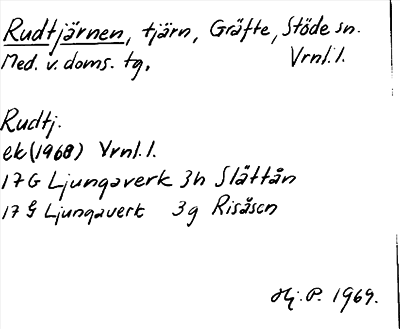 Rudtjärnen, tjärn, Gräfte, Stöde sn.
Med. v. doms. tg. Vrnl. l.
Rudtj.
ek (1968) Vrnl. l.
17G Ljungaverk 3h Slättån
17 G Ljungaverk 3g Risåsen
Hj. P. 1969.